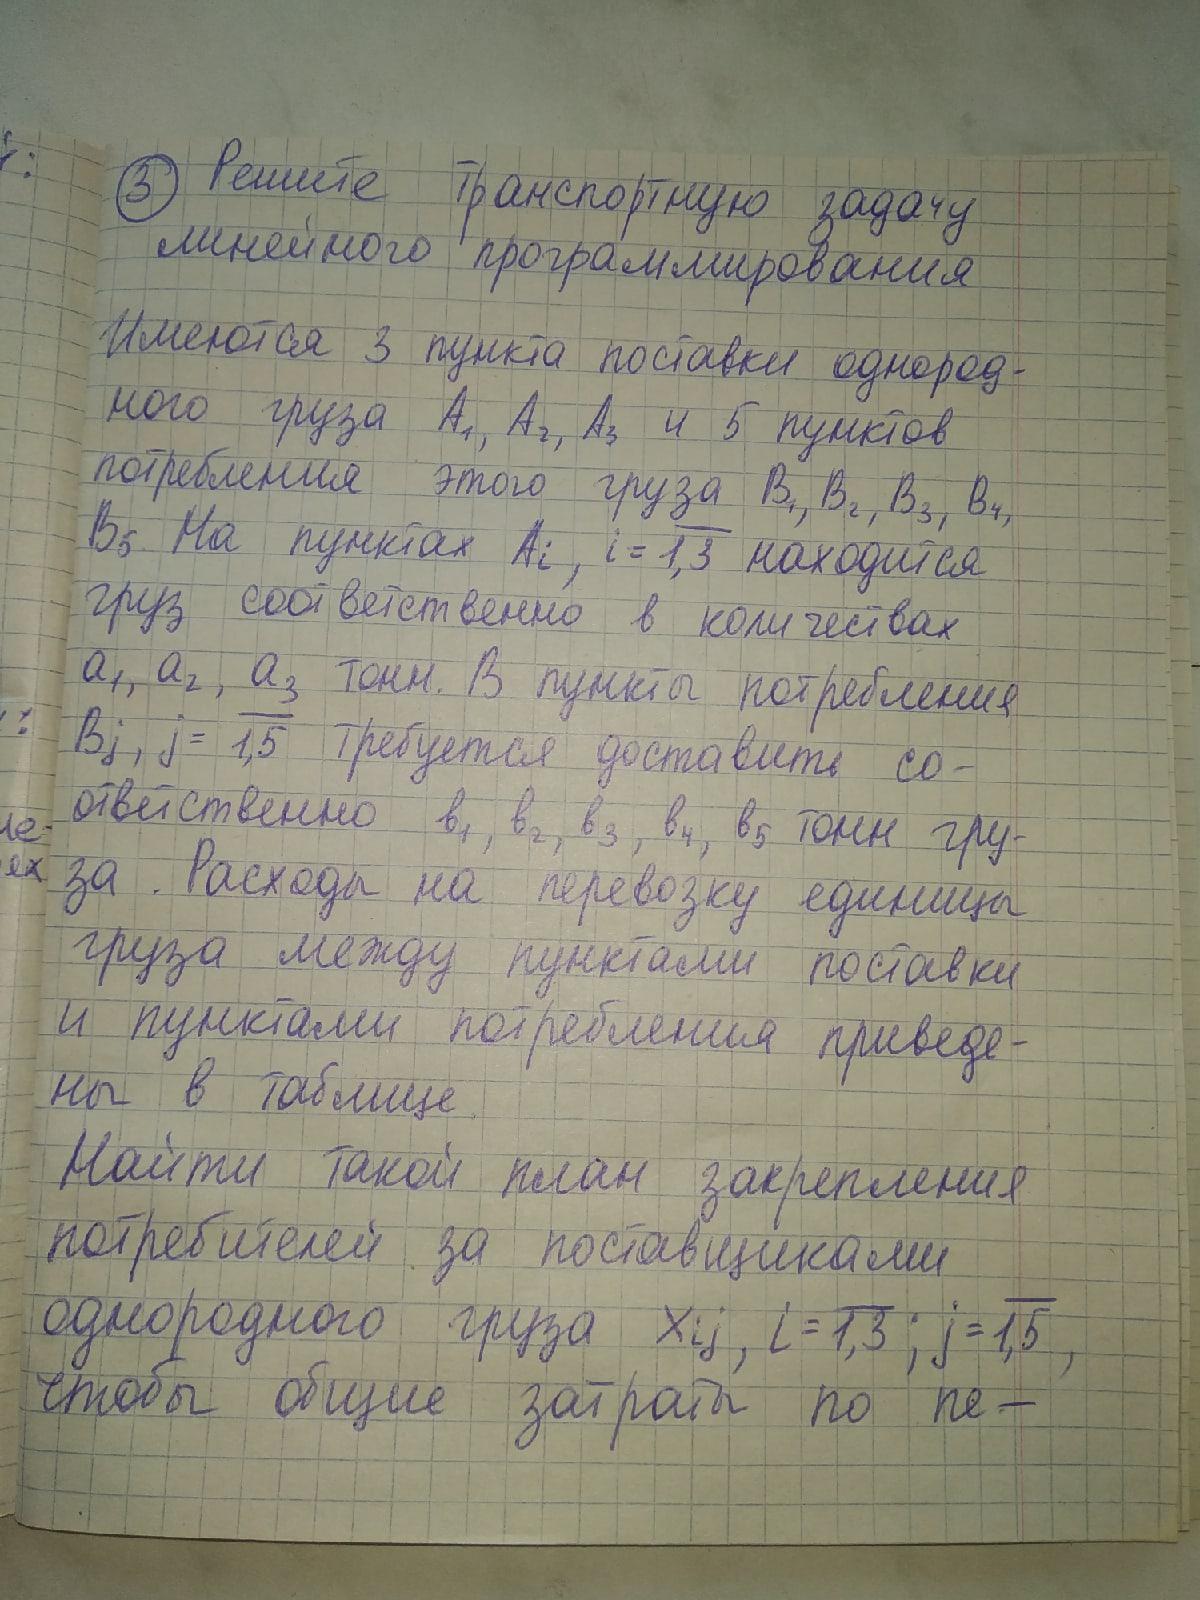 ③ Решите транспортную задачу
линейного программирования
Имеются 3 пункта поставки однород-
ного груза A₁, A₂, A₃ и 5 пунктов
потребления этого груза B₁, B₂, B₃, B₄,
B₅. На пунктах Ai, i = 1,3 находится
груз соответственно в количествах
a₁, a₂, a₃ тонн. В пункты потребления
Bj, j = 1,5 требуется доставить со-
ответственно в₁, в₂, в₃, в₄, в₅ тонн гру-
за. Расходы на перевозку единицы
груза между пунктами поставки
и пунктами потребления приведе-
ны в таблице.
Найти такой план закрепления
потребителей за поставщиками
однородного груза xij, i = 1,3; j = 1,5,
чтобы общие затраты по пе-